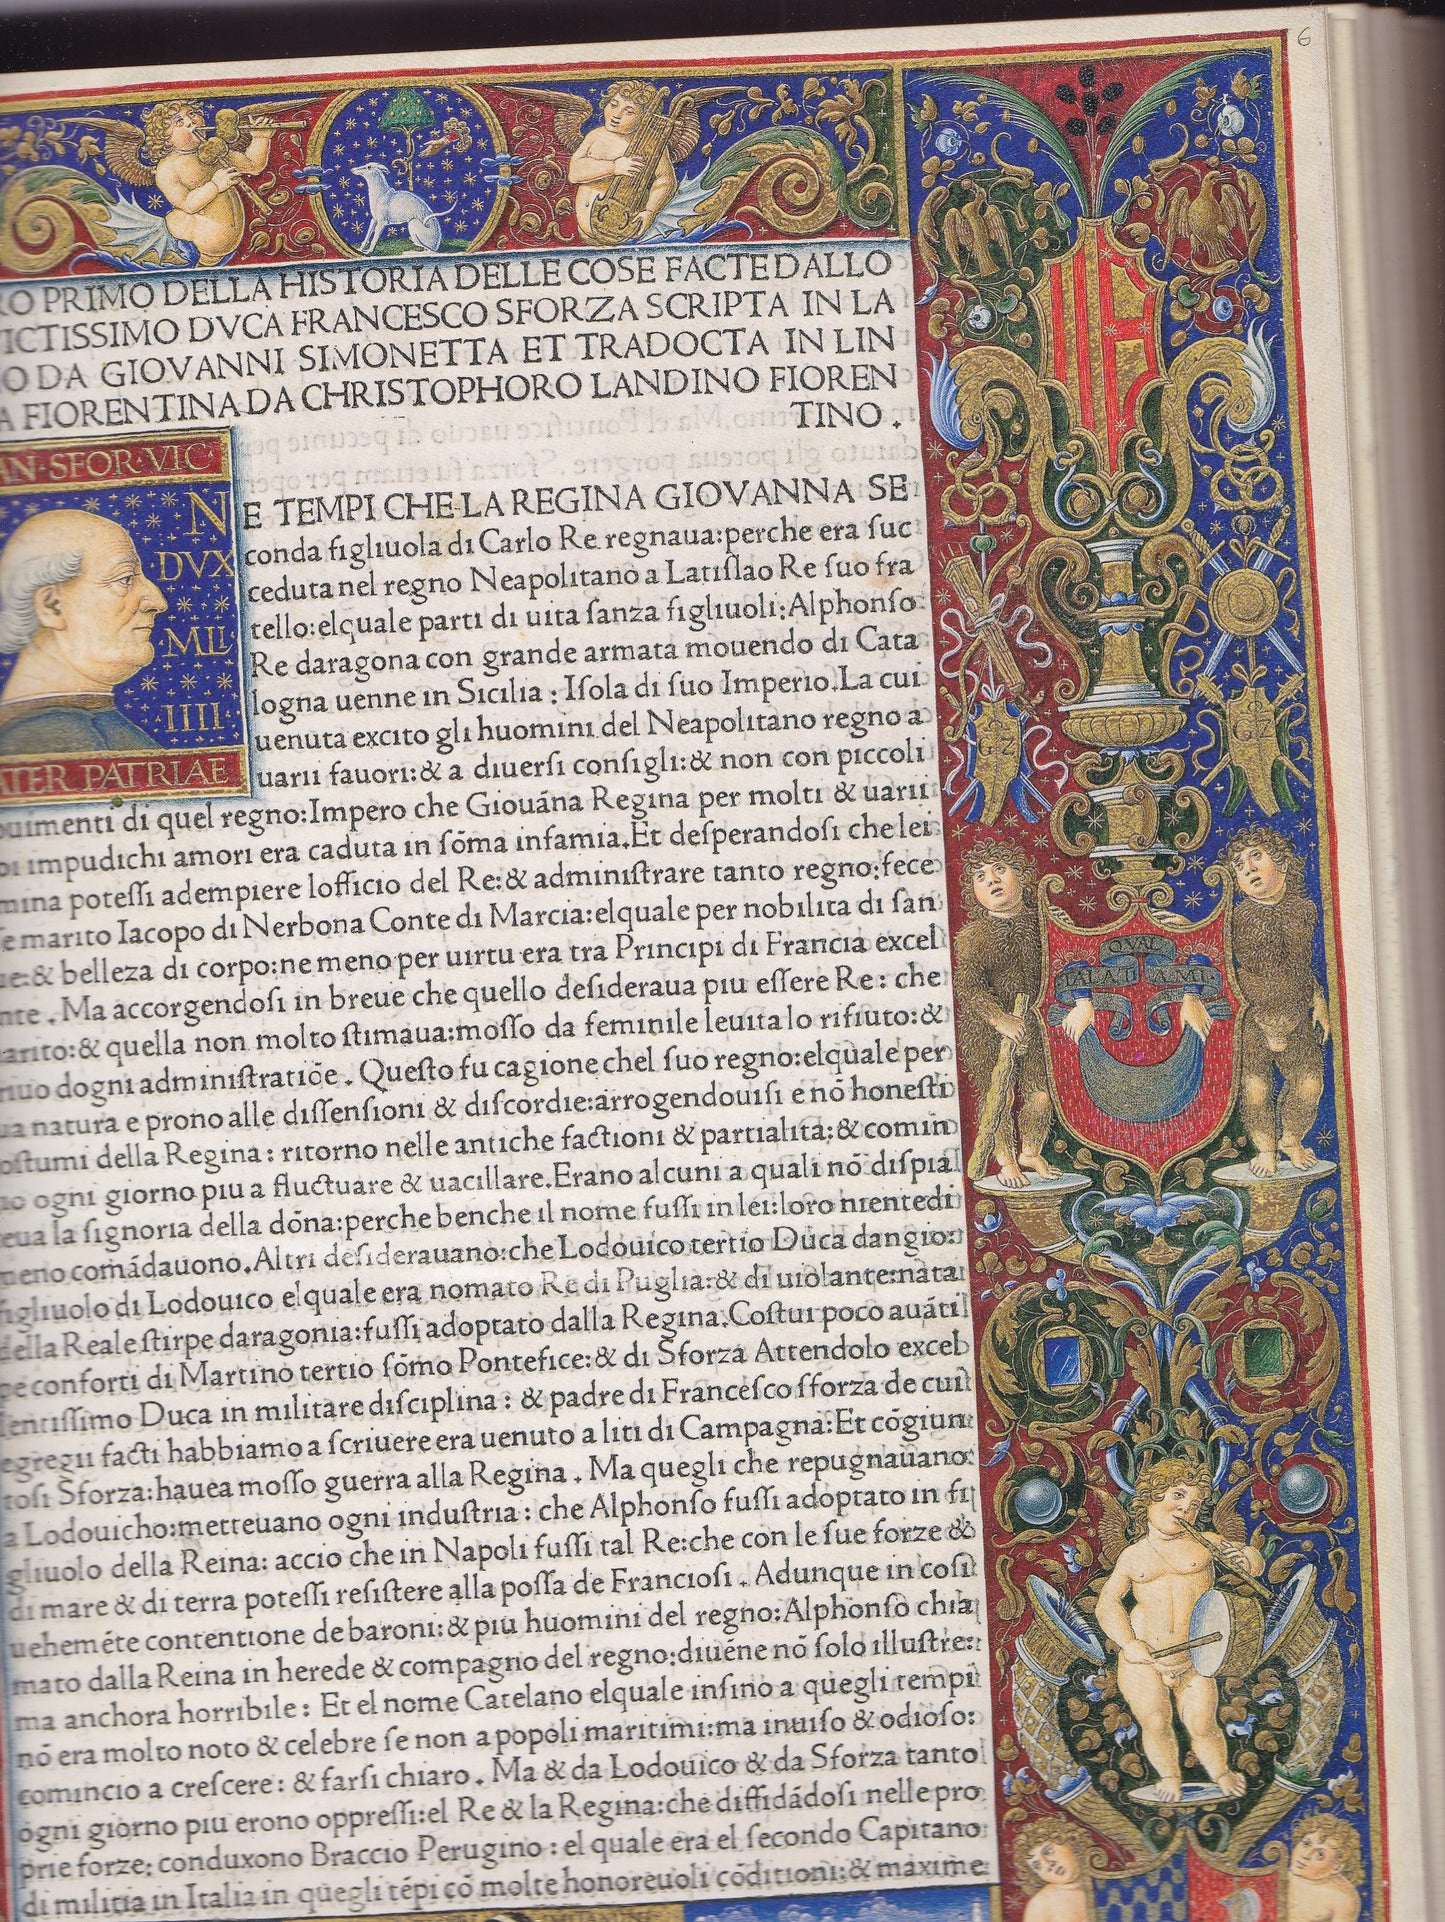 6
RO PRIMO DELLA HISTORIA DELLE COSE FACTE DALLO
VICTISSIMO DVCA FRANCESCO SFORZA SCRIPTA IN LA
NO DA GIOVANNI SIMONETTA ET TRADOCTA IN LIN
A FIORENTINA DA CHRISTOPHORO LANDINO FIOREN
TINO.
AN·SFOR·VIC
N
DVX
MLI
IIII
ATER PATRIAE
E TEMPI CHE LA REGINA GIOVANNA SE
conda figliuola di Carlo Re regnaua:perche era ſuc
ceduta nel regno Neapolitano a Latiſlao Re ſuo fra
tello:elquale parti di uita ſanza figliuoli:Alphonſo
Re daragona con grande armata mouendo di Cata
logna uenne in Sicilia: Iſola di ſuo Imperio.La cui
uenuta excito gli huomini del Neapolitano regno a
uarii fauori:& a diuerſi conſigli:& non con piccoli
ouimenti di quel regno:Impero che Giouāna Regina per molti & uarii
oi impudichi amori era caduta in ſōma infamia.Et deſperandoſi che lei
mina poteſſi adempiere lofficio del Re:& adminiſtrare tanto regno:fece
ſe marito Iacopo di Nerbona Conte di Marcia:elquale per nobilita di ſan
ue:& belleza di corpo:ne meno per uirtu era tra Principi di Francia excel
nte. Ma accorgendoſi in breue che quello deſideraua piu eſſere Re: che
arito:& quella non molto ſtimaua:moſſo da feminile leuita lo rifiuto:&
riuo dogni adminiſtratiōe. Queſto fu cagione chel ſuo regno:elquale per
ua natura e prono alle diſſenſioni & diſcordie:arrogendouiſi e nō honeſti
oſtumi della Regina: ritorno nelle antiche factioni & partialita:& comin
io ogni giorno piu a fluctuare & uacillare.Erano alcuni a quali nō diſpia
eua la ſignoria della dōna:perche benche il nome fuſſi in lei:loro niente di
meno comādauono.Altri deſiderauano:che Lodouico tertio Duca dangio:
figliuolo di Lodouico elquale era nomato Re di Puglia:& di uiolante:nata
della Reale ſtirpe daragonia:fuſſi adoptato dalla Regina.Coſtui poco auāti
pe conforti di Martino tertio ſōmo Pontefice:& di Sforza Attendolo excel
lentiſſimo Duca in militare diſciplina: & padre di Franceſco ſforza de cui
egregii facti habbiamo a ſcriuere era uenuto a liti di Campagna:Et cōgiun
toſi Sforza:hauea moſſo guerra alla Regina. Ma quegli che repugnauano
a Lodouicho:metteuano ogni induſtria: che Alphonſo fuſſi adoptato in fi
gliuolo della Reina: accio che in Napoli fuſſi tal Re:che con le ſue forze &
di mare & di terra poteſſi reſiſtere alla poſſa de Francioſi. Adunque in coſi
uehemēte contentione de baroni:& piu huomini del regno:Alphonſo chia
mato dalla Reina in herede & compagno del regno:diuēne nō ſolo illuſtre:
ma anchora horribile: Et el nome Catelano elquale inſino a quegli tempi
nō era molto noto & celebre ſe non a popoli maritimi:ma inuiſo & odioſo:
comincio a creſcere: & farſi chiaro. Ma & da Lodouico & da Sforza tanto
ogni giorno piu erono oppreſſi:el Re & la Regina:che diffidādoſi nelle pro
prie forze: conduxono Braccio Perugino: el quale era el ſecondo Capitano
di militia in Italia in quegli tēpi cō molte honoreuoli cōditioni:& maxime
QVAL
TALA TI AMI
G Z
G Z